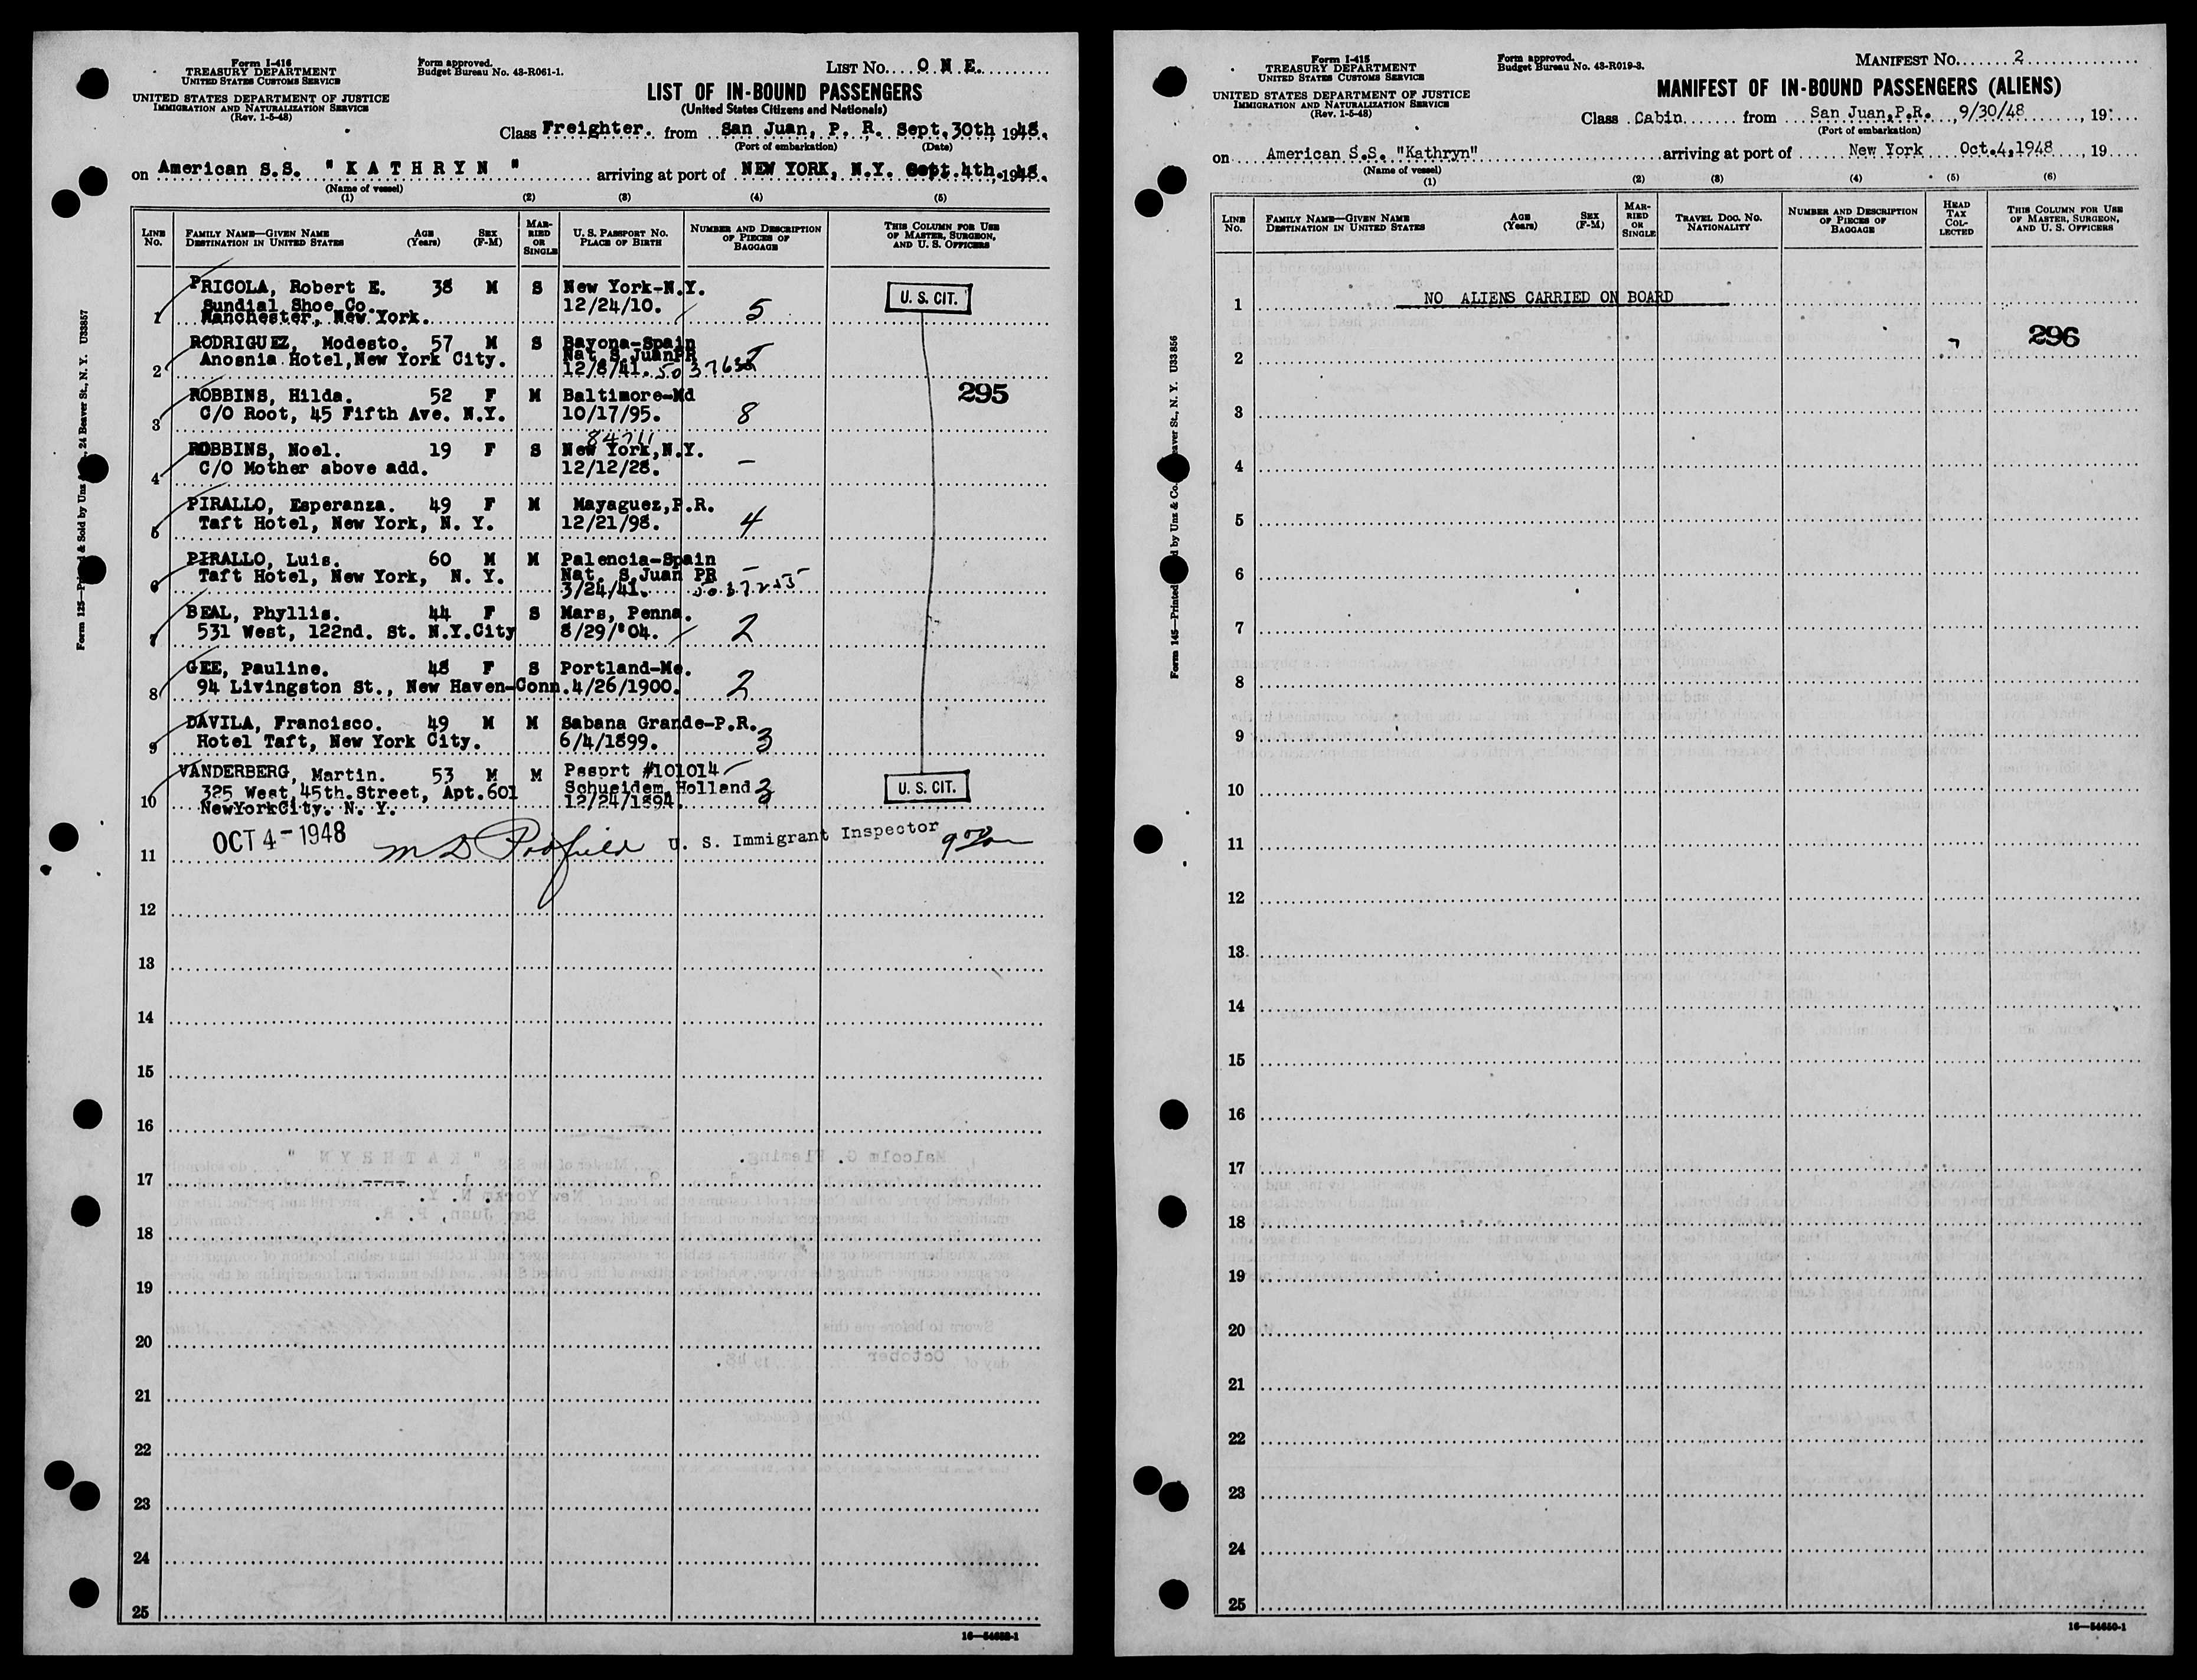 Form I-416
TREASURY DEPARTMENT
UNITED STATES CUSTOMS SERVICE
UNITED STATES DEPARTMENT OF JUSTICE
IMMIGRATION AND NATURALIZATION SERVICE
(Rev. 1-5-48)
Form approved.
Budget Bureau No. 43-R061-1.
LIST No. O N E.
LIST OF IN-BOUND PASSENGERS
(United States Citizens and Nationals)
Class Freighter. from San Juan, P. R. Sept. 30th, 1948.
(Port of embarkation) (Date)
on American S.S. "K A T H R Y N" arriving at port of NEW YORK, N.Y. 4th, 1948.
(Name of vessel)
(1) (2) (3) (4) (5)
LINE No. FAMILY NAME—GIVEN NAME DESTINATION IN UNITED STATES AGE (Years) SEX (F-M) MARRIED OR SINGLE U. S. PASSPORT No. PLACE OF BIRTH NUMBER AND DESCRIPTION OF PIECES OF BAGGAGE THIS COLUMN FOR USE OF MASTER, SURGEON, AND U. S. OFFICERS
PRICOLA, Robert E. 38 M S New York-N.Y. U. S. CIT.
Sundial Shoe Co. 12/24/10. 5
1 Manchester, New York.
RODRIGUEZ, Modesto. 57 M S Bayona-Spain
Anosnia Hotel, New York City. Nat. S JuanPR
2 12/8/41.
ROBBINS, Hilda. 52 F M Baltimore-Md 295
C/O Root, 45 Fifth Ave. N.Y. 10/17/95. 8
3
84711
ROBBINS, Noel. 19 F S New York, N.Y.
C/O Mother above add. 12/12/28. –
4
PIRALLO, Esperanza. 49 F M Mayaguez, P.R.
Taft Hotel, New York, N. Y. 12/21/98. 4
5
PIRALLO, Luis. 60 M M Palencia-Spain –
Taft Hotel, New York, N. Y. Nat. S Juan PR
6 3/24/41.
BEAL, Phyllis. 44 F S Mars, Penna.
531 West, 122nd. St. N.Y.City 8/29/'04. 2
7
GEE, Pauline. 48 F S Portland-Me.
8 94 Livingston St., New Haven-Conn. 4/26/1900. 2
DAVILA, Francisco. 49 M M Sabana Grande-P.R.
9 Hotel Taft, New York City. 6/4/1899. 3
VANDERBERG, Martin. 53 M M Pssprt #101014
325 West, 45th. Street, Apt.601 Schueidem, Holland 3 U. S. CIT.
10 NewYorkCity. N. Y. 12/24/1894.
OCT 4-1948 U. S. Immigrant Inspector
11
12
13
14
15
16
17
18
19
20
21
22
23
24
25
Form I-415
TREASURY DEPARTMENT
UNITED STATES CUSTOMS SERVICE
UNITED STATES DEPARTMENT OF JUSTICE
IMMIGRATION AND NATURALIZATION SERVICE
(Rev. 1-5-48)
Form approved.
Budget Bureau No. 43-R019-3.
MANIFEST No. 2
MANIFEST OF IN-BOUND PASSENGERS (ALIENS)
Class Cabin from San Juan, P.R., 9/30/48, 19
(Port of embarkation)
on American S.S. "Kathryn" arriving at port of New York Oct. 4, 1948, 19
(Name of vessel)
(1) (2) (3) (4) (5) (6)
LINE No. FAMILY NAME—GIVEN NAME DESTINATION IN UNITED STATES AGE (Years) SEX (F-M) MARRIED OR SINGLE TRAVEL DOC. No. NATIONALITY NUMBER AND DESCRIPTION OF PIECES OF BAGGAGE HEAD TAX COLLECTED THIS COLUMN FOR USE OF MASTER, SURGEON, AND U. S. OFFICERS
1 NO ALIENS CARRIED ON BOARD
2 296
3
4
5
6
7
8
9
10
11
12
13
14
15
16
17
18
19
20
21
22
23
24
25
16—54650-1